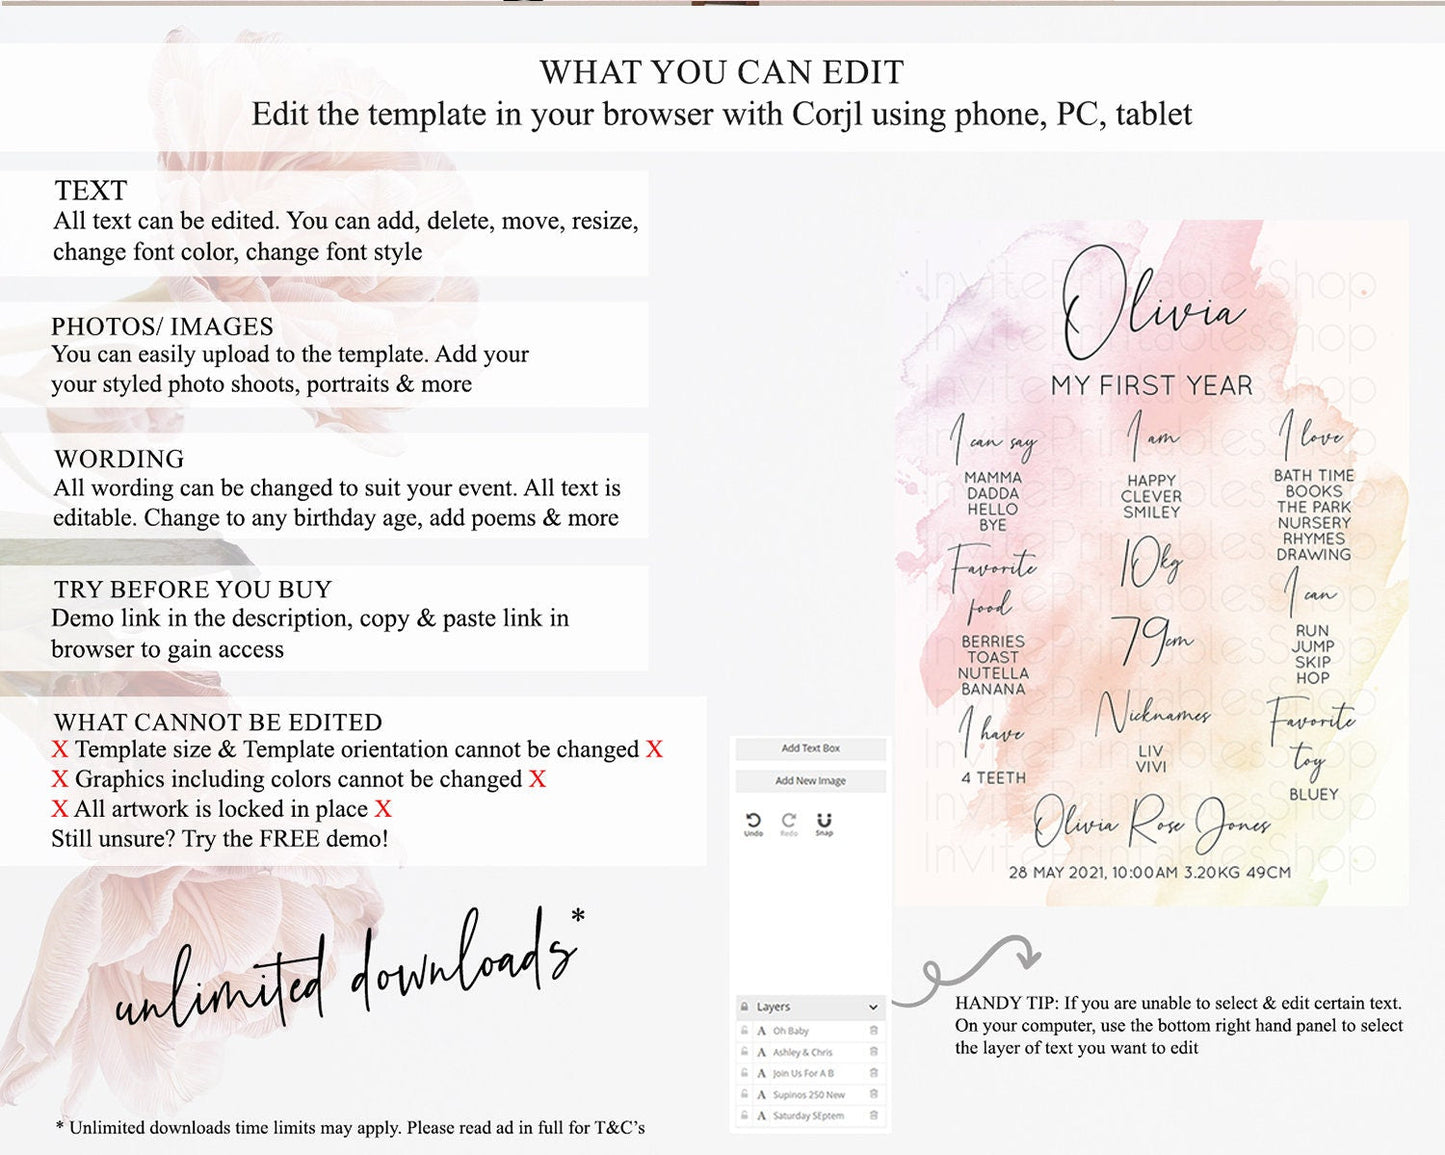 WHAT YOU CAN EDIT
Edit the template in your browser with Corjl using phone, PC, tablet
TEXT
All text can be edited. You can add, delete, move, resize,
change font color, change font style
PHOTOS/ IMAGES
You can easily upload to the template. Add your
your styled photo shoots, portraits & more
WORDING
All wording can be changed to suit your event. All text is
editable. Change to any birthday age, add poems & more
TRY BEFORE YOU BUY
Demo link in the description, copy & paste link in
browser to gain access
WHAT CANNOT BE EDITED
X Template size & Template orientation cannot be changed X
X Graphics including colors cannot be changed X
X All artwork is locked in place X
Still unsure? Try the FREE demo!
unlimited downloads*
* Unlimited downloads time limits may apply. Please read ad in full for T&C's
Add Text Box
Add New Image
Undo Redo Snap
Layers
A Oh Baby
A Ashley & Chris
A Join Us For A B
A Supinos 250 New
A Saturday SEptem
InvitePrintablesShop
Olivia
MY FIRST YEAR
I can say
MAMMA
DADDA
HELLO
BYE
Favorite
food
BERRIES
TOAST
NUTELLA
BANANA
I have
4 TEETH
I am
HAPPY
CLEVER
SMILEY
10kg
79cm
Nicknames
LIV
VIVI
I love
BATH TIME
BOOKS
THE PARK
NURSERY
RHYMES
DRAWING
I can
RUN
JUMP
SKIP
HOP
Favorite
toy
BLUEY
Olivia Rose Jones
28 MAY 2021, 10:00AM 3.20KG 49CM
HANDY TIP: If you are unable to select & edit certain text.
On your computer, use the bottom right hand panel to select
the layer of text you want to edit